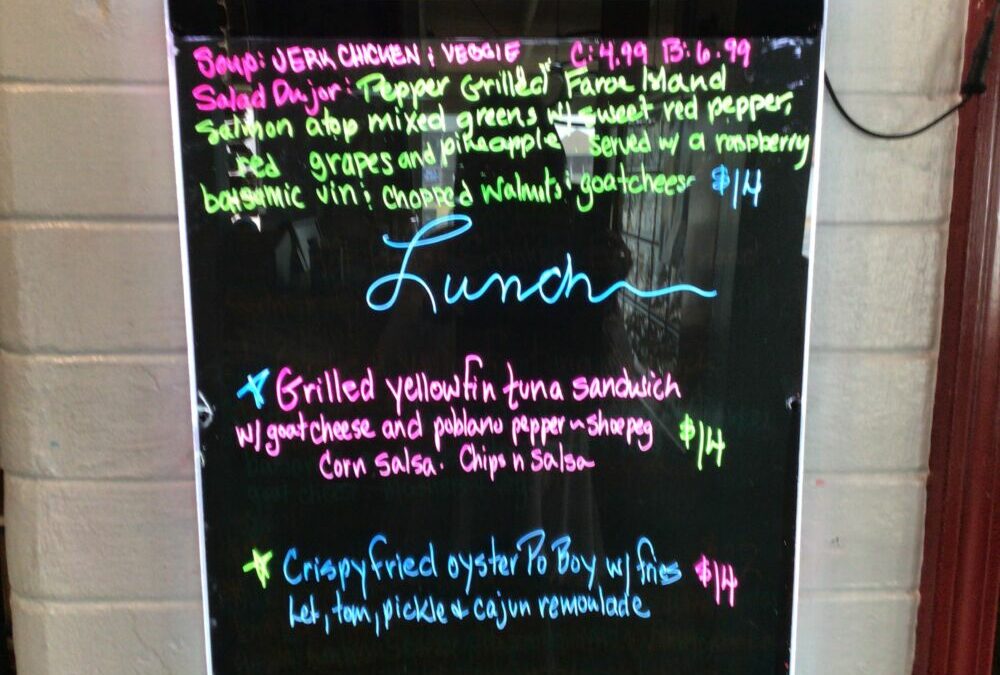 Soup: JERK CHICKEN & VEGGIE C: 4.99 B: 6.99
Salad Dujor: Pepper Grilled Faroe Island
salmon atop mixed greens w/ sweet red pepper,
red grapes and pineapple served w/ a raspberry
balsamic vin & chopped walnuts & goatcheese $14
Lunch
Grilled yellowfin tuna sandwich
w/ goat cheese and poblano pepper ~ shoepeg $14
Corn Salsa. Chips n Salsa
Crispy fried oyster Po Boy w/ fries $14
Let, tom, pickle & cajun remoulade